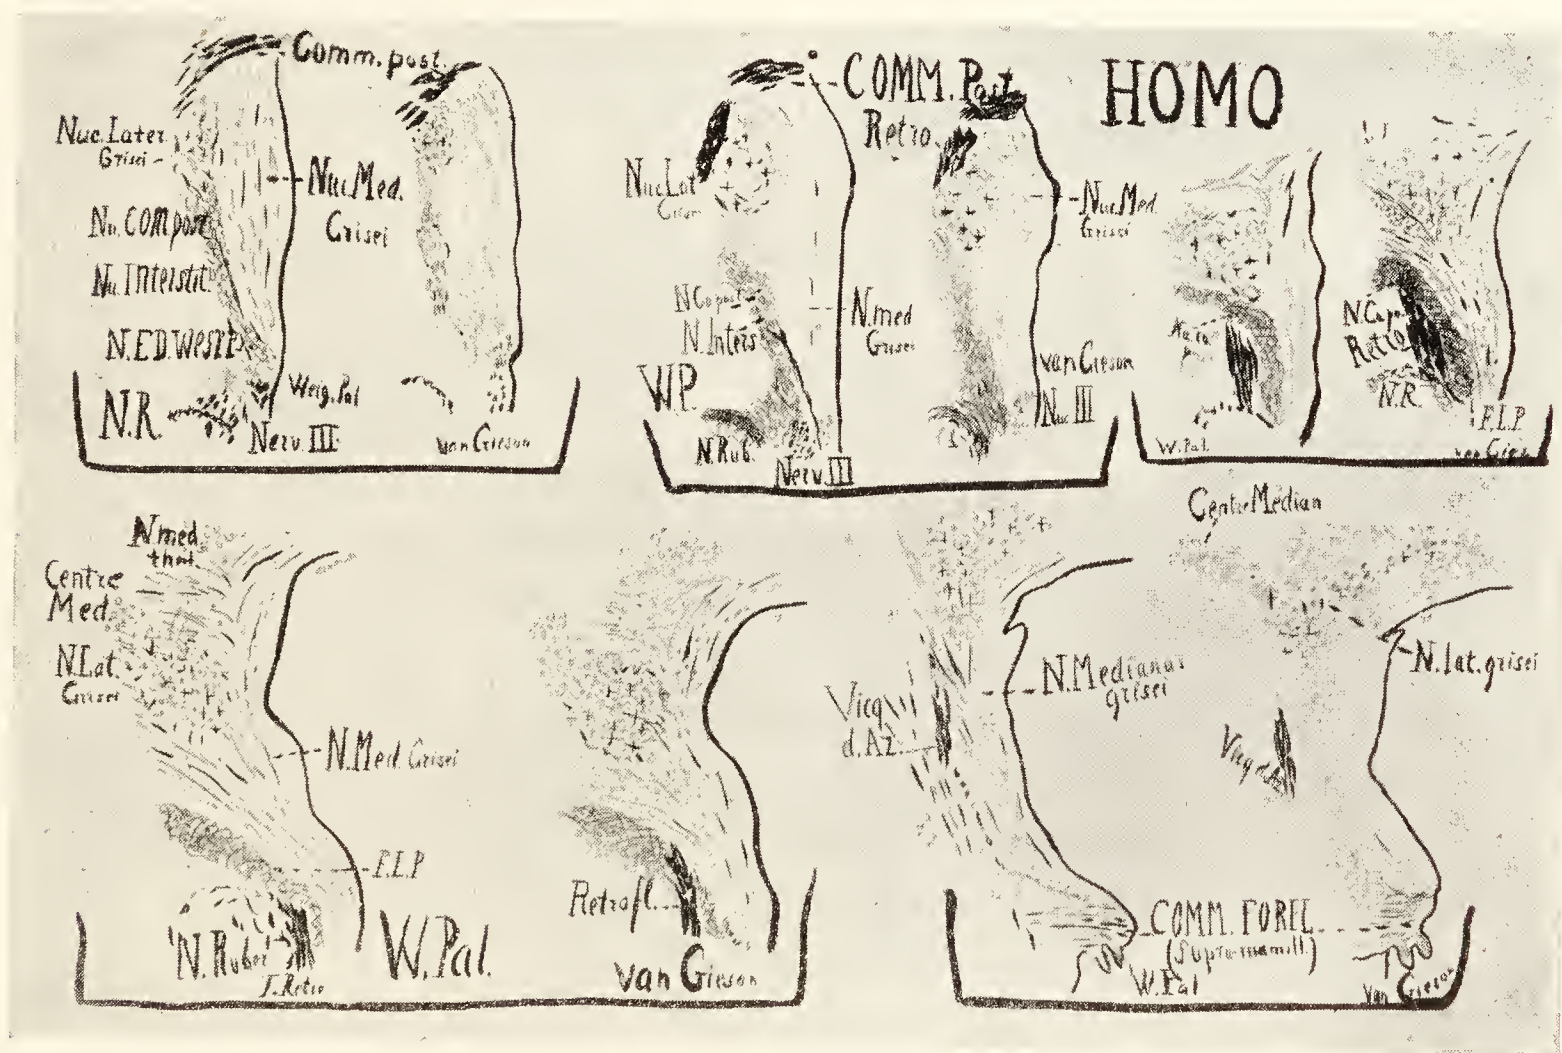 Comm. post.
Nuc. Later
Grisei
Nuc. Med.
Grisei
Nu. Com post
Nu. Interstit.
N. ED. West
N.R.
Weig. Pal
Nerv. III.
van Gieson
COMM. Post
Retro.
Nuc. Lat
Nuc. Med.
Grisei
N. Co post
N. Inters
N. med
Grisei
W.P.
van Gieson
Nu. III
N. Rub.
Nerv. III
HOMO
Retro
N.R.
F.L.P
W. Pal.
van Gies
N. med.
thal.
Centre
Med.
N. Lat.
Grisei
N. Med. Grisei
F.L.P
N. Ruber
F. Retro
W. Pal.
Retrofl.
van Gieson
Centre Median
N. Medianus
grisei
N. lat. grisei
Vicq
d. AZ.
Vicq d.
COMM. FOREL
(Supra-mamill.)
W. Pal
van Gieson